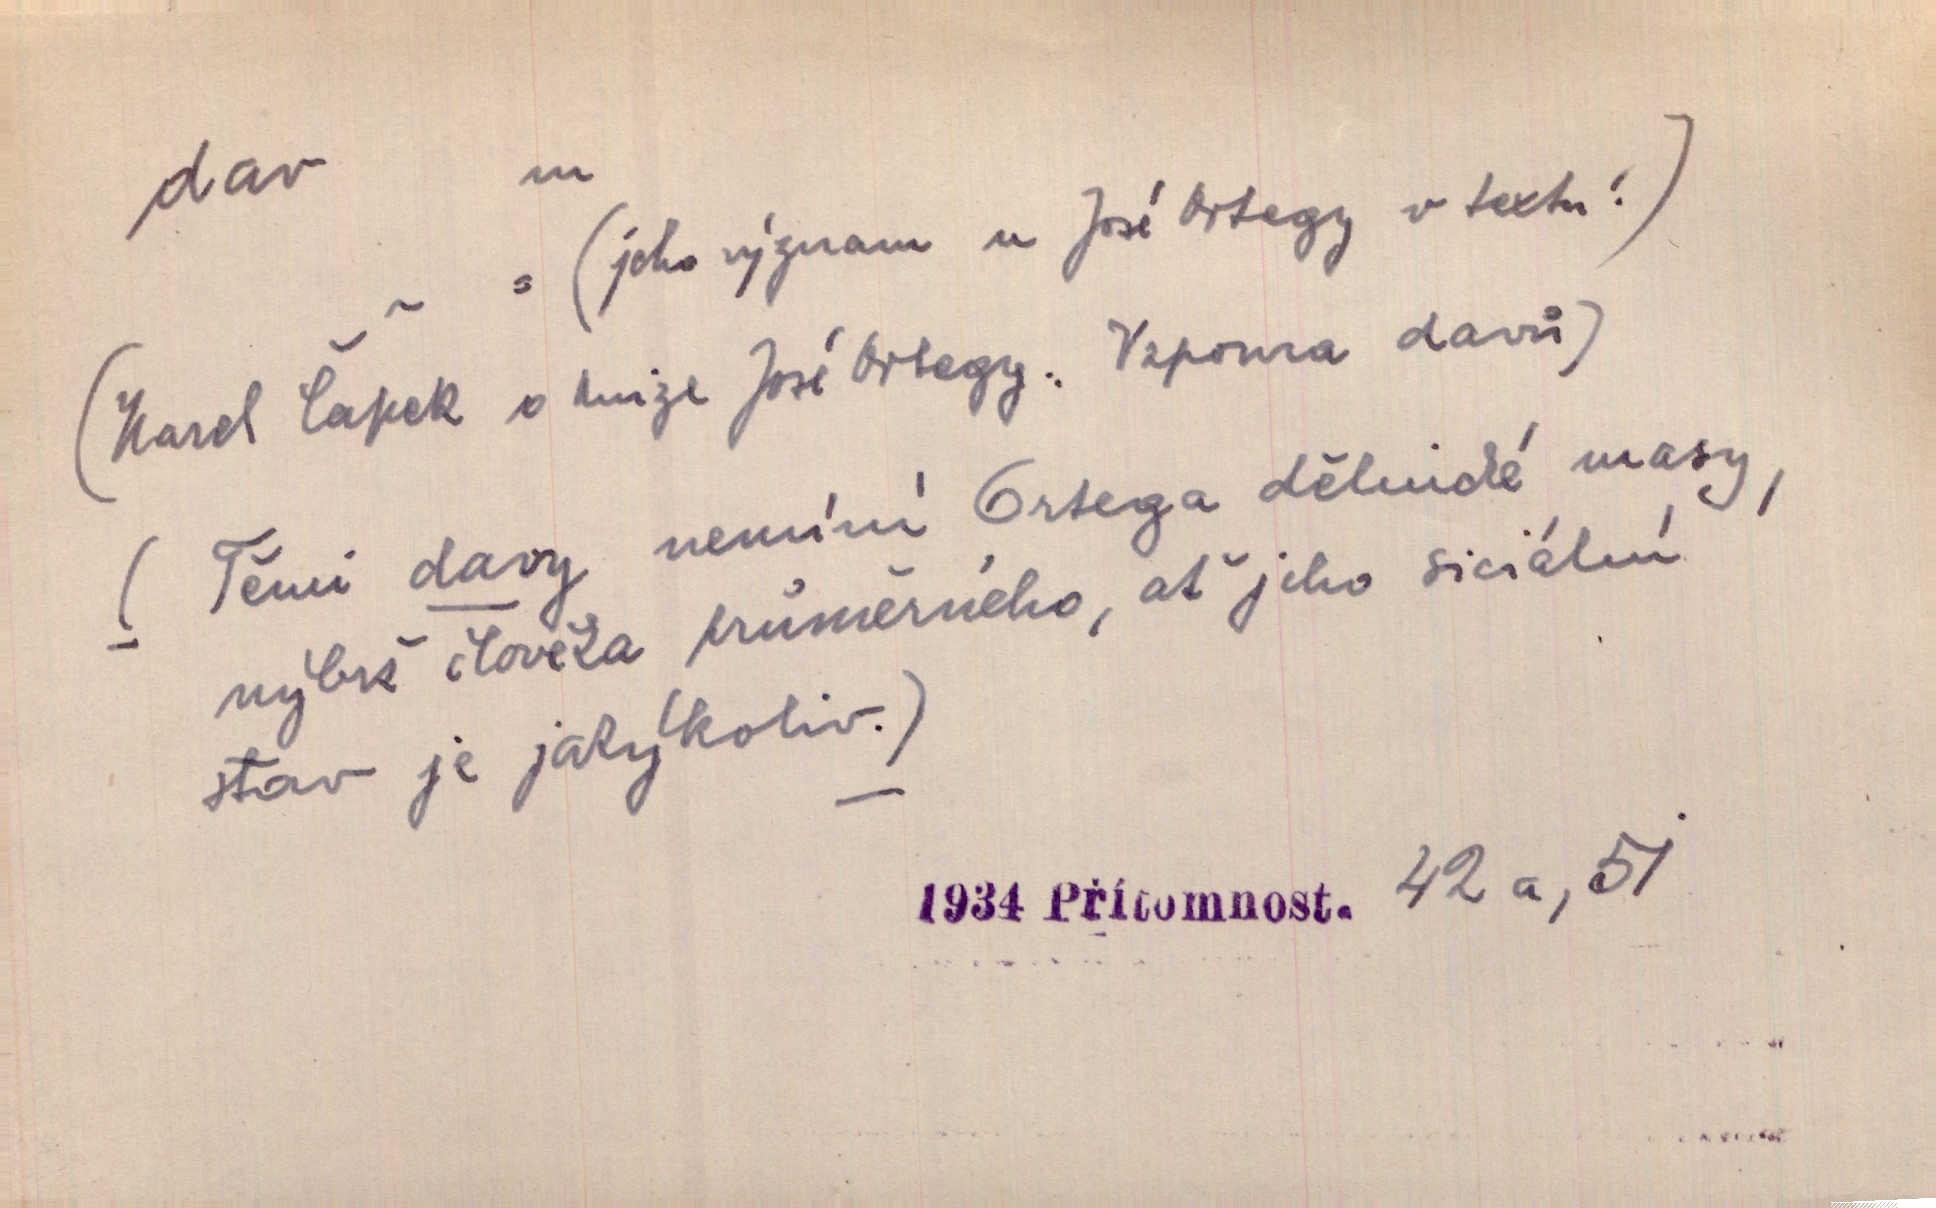 dav m
s (jeho význam u José Ortegy v textu:)
(Karel Čapek o knize José Ortegy: Vzpoura davů)
( Těmi davy nemíní Ortega dělnické masy,
nýbrž člověka průměrného, ať jeho siciální
stav je jakýkoliv.)
1934 Přítomnost. 42 a, 51